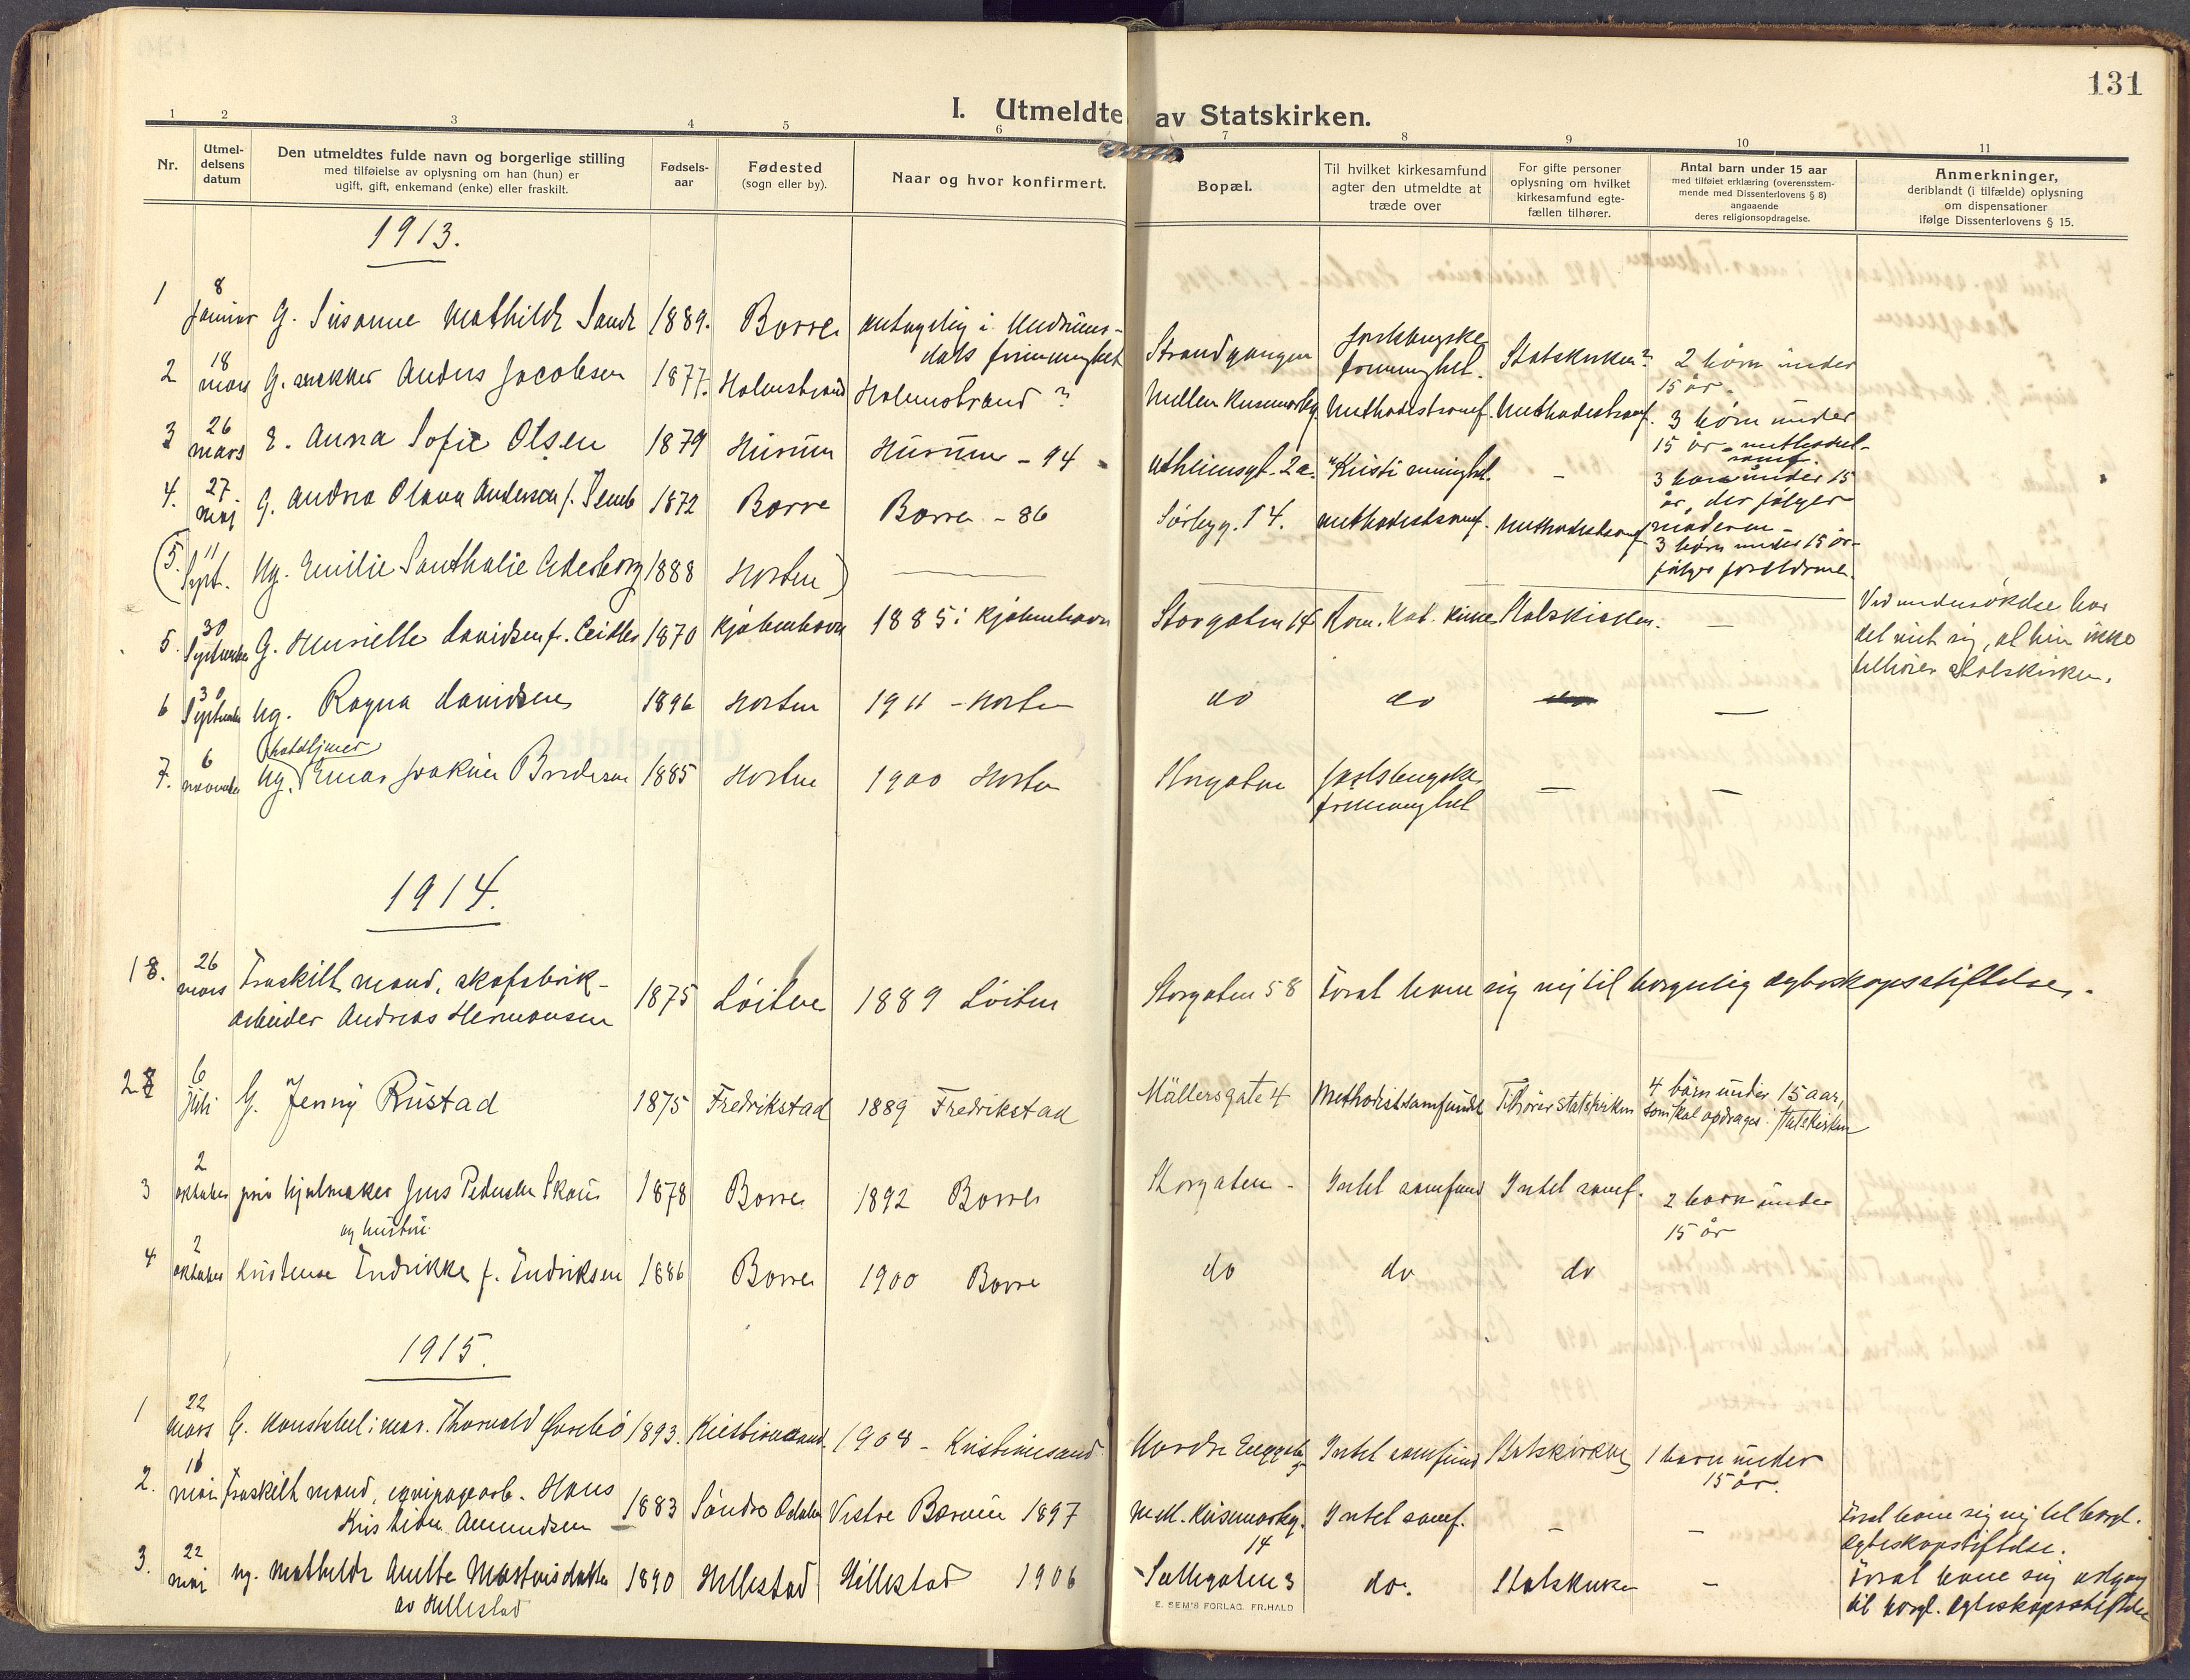 131
I. Utmeldte av Statskirken.
1 2 3 4 5 6 7 8 9 10 11
Nr.
Utmel-
delsens
datum
Den utmeldtes fulde navn og borgerlige stilling
med tilføielse av oplysning om han (hun) er
ugift, gift, enkemand (enke) eller fraskilt.
Fødsels-
aar
Fødested
(sogn eller by).
Naar og hvor konfirmert.
Bopæl.
Til hvilket kirkesamfund
agter den utmeldte at
træde over
For gifte personer
oplysning om hvilket
kirkesamfund egte-
fællen tilhører.
Antal barn under 15 aar
med tilføiet erklæring (overensstem-
mende med Dissenterlovens § 8)
angaaende
deres religionsopdragelse.
Anmerkninger,
deriblandt (i tilfælde) oplysning
om dispensationer
ifølge Dissenterlovens § 15.
1913.
1 8 januar G. Susanne Mathilde Sande 1889. Borre antagelig i Undrums-
dals frimenighet Strandgangen Jarlsbergske
frimenighet. Statskirken? 2 børn under
15 år.
2 18 mars G. Anders Jacobsen 1877. Holmestrand Holmestrand ? Methodistsamf. Methodistsamf. 3 børn under
15 år - methodist-
samf.
3 26 mars E. Anna Sofie Olsen 1879 Hurum Hurum - 94 2a. "Kristi menighet. - 3 barn under 15
år, der følger
moderen -
4. 27. maj G. Andrea Olava Andersen f. Semb 1872 Borre Borre - 86 14. Methodistsamf. Methodistsamf. 3 børn under 15 år
følger forældrene.
(5. 11 Sept. Ug. Emilie Santhalie Cedesborg 1888 Horten)
5. 30 September G. Henriette Davidsen f. Ceidler 1870 Kjøbenhavn 1885 i Kjøbenhavn Storgaten 14 Rom. Kat. Kirke Statskirken. - Ved undersøkelse har
det vist sig, at hun ikke
tilhører Statskirken.
6 30 September Ug. Ragna Davidsen 1896 Horten 1911 - Horten do do do -
7. 6 november Ug. (hoteltjener) Einar Joakim Brodersen 1885 Horten 1900 Horten Storgaten Jarlsbergske
frimenighet - -
1914.
1 8. 26 mars Fraskilt mand, skofabrik-
arbeider Andreas Hermansen 1875 Løiten 1889 Løiten Storgaten 58 Forat bane sig vej til borgerlig ægteskapsstiftelse.
2 6 juli G. Jenny Rustad 1875 Fredrikstad 1889 Fredrikstad Møllersgate 4 Methodistsamfundet Tilhører statskirken 4 børn under 15 aar,
som skal opdrages i statskirken
3 2 oktober hjulmaker Jens Pedersen Skaus 1878 Borre 1892 Borre Storgaten - Intet samfund Intet samf. 2 barn under
15 år
og hustru
4 2 oktober Kristense Fredrikke f. Fredriksen 1886 Borre 1900 Borre do do do
1915.
1 22 mars G. Konstabel i mar. Thorvald 1893. Kristiansand. 1908 - Kristiansand Nordre Enggate
5 Intet samfund Statskirken 1 barn under
15 år.
2. 16 mai Fraskilt mand, ekvipagearb. Hans
Kristian Amundsen 1883 Søndre Odalen Vestre Bærum 1897 Mell.
14 Intet samf. - - Forat bane sig vej til borgl.
ægteskapstiftelse.
3. 22 mai ug. Mathilde Anette Mostvisdatter
av Hillestad 1890 Hillestad Hillestad 1906 3 do. Statskirken - Forat bane sig adgang
til borgl. ægteskapsstiftelse
E. SEM'S FORLAG. FR.HALD